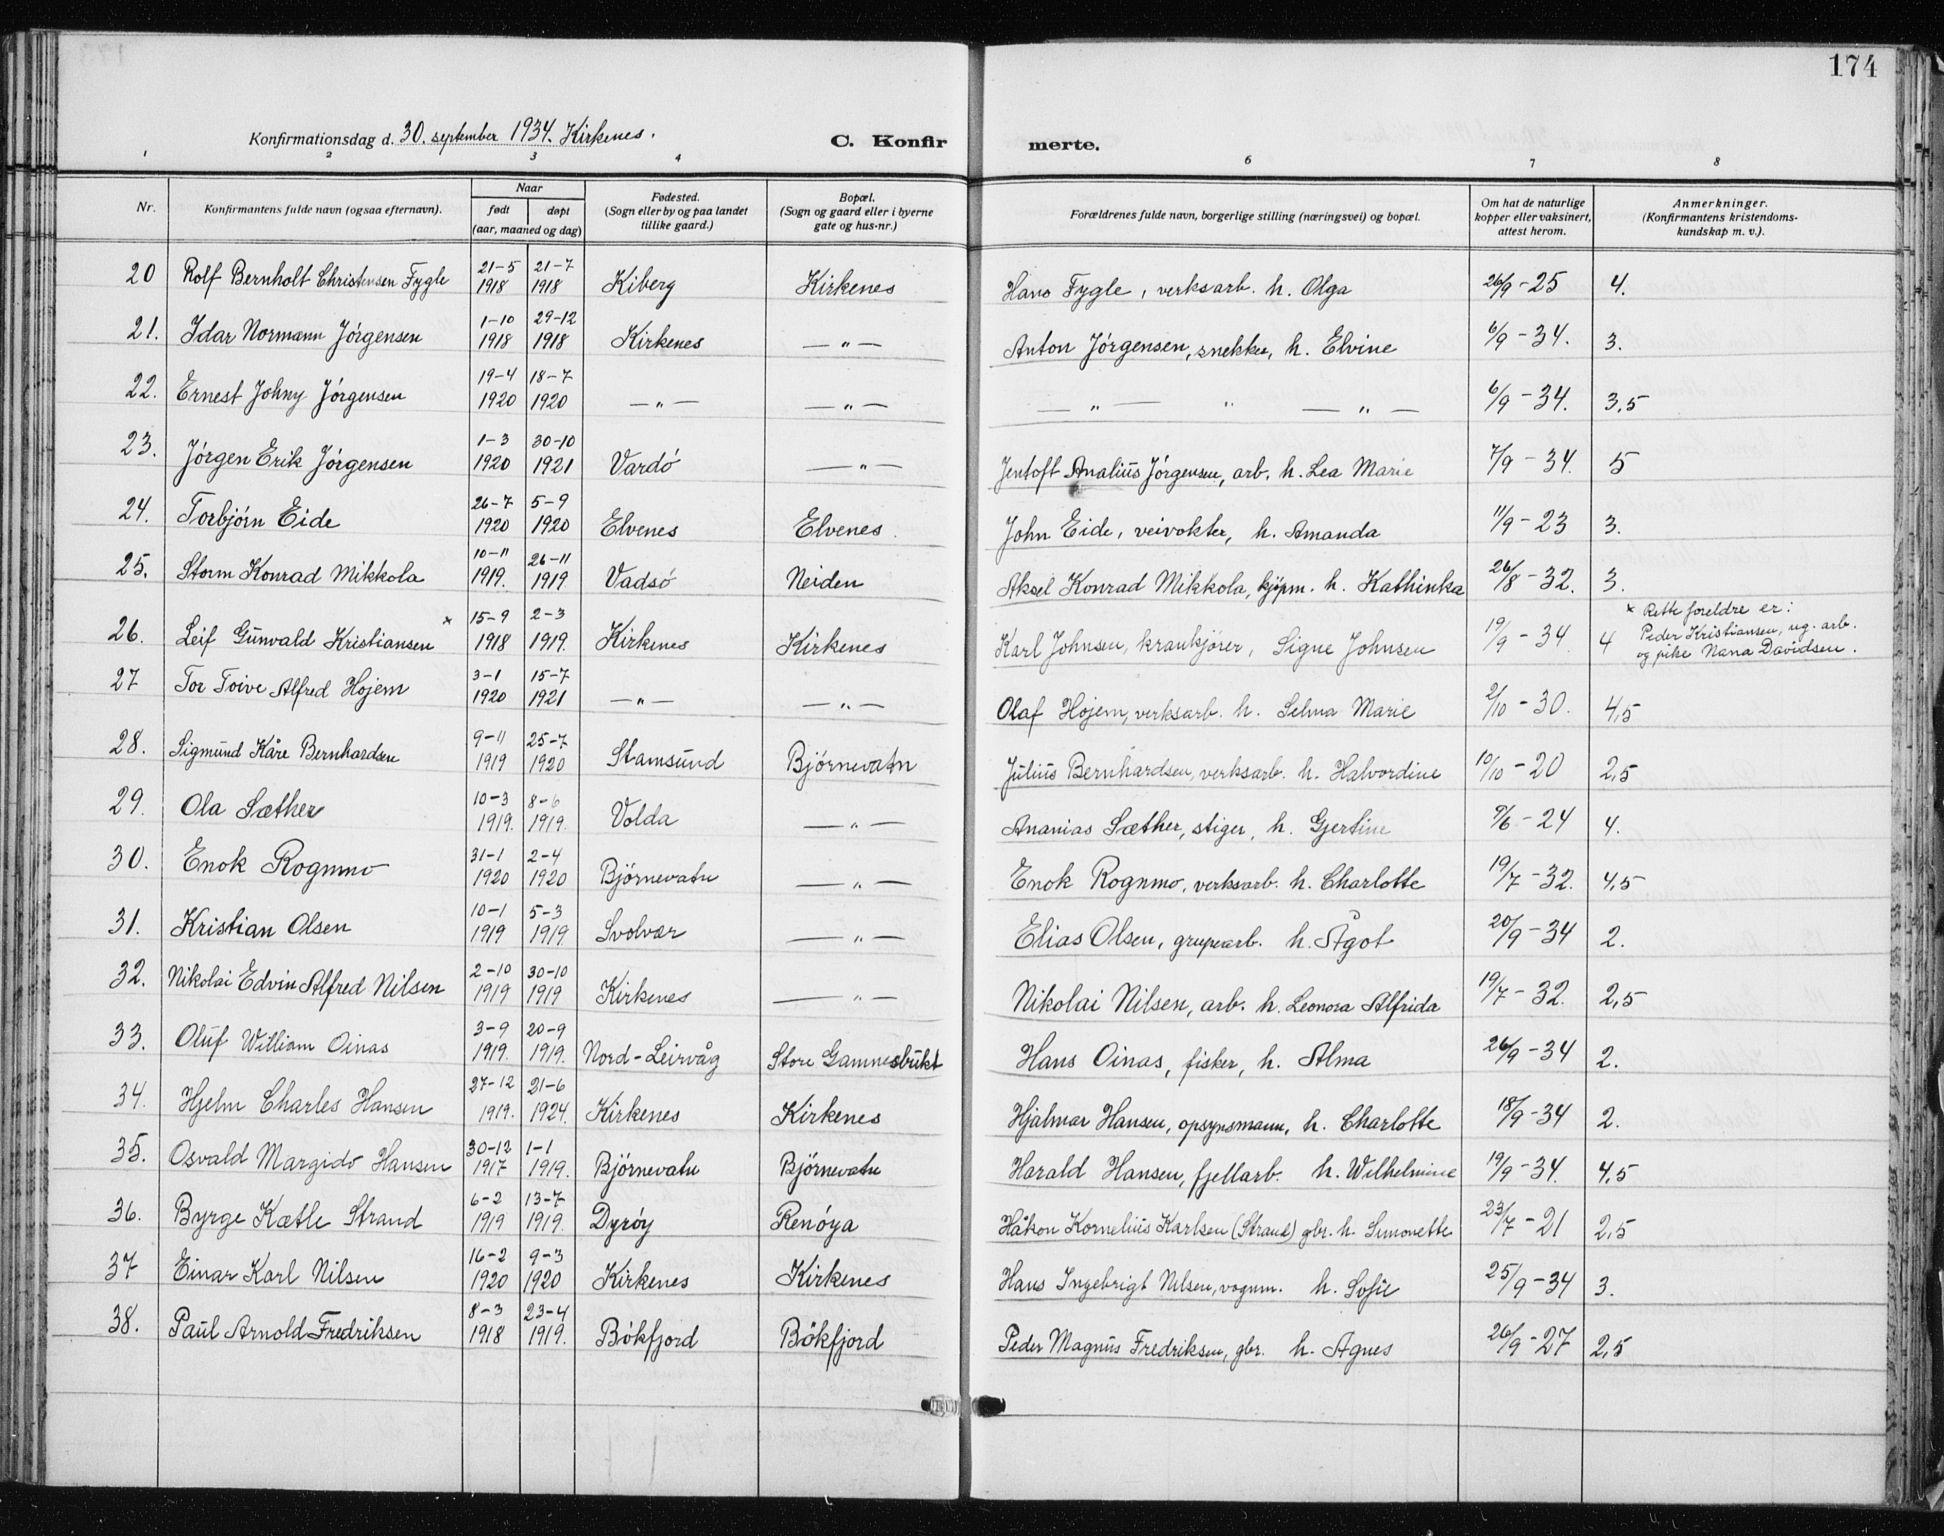 174
Konfirmationsdag d. 30. september 1934. Kirkenes.
C. Konfirmerte.
1 2 3 4 6 7 8
Nr. | Konfirmantens fulde navn (ogsaa efternavn). | Naar født døpt (aar, maaned og dag) | Fødested. (Sogn eller by og paa landet tillike gaard.) | Bopæl. (Sogn og gaard eller i byerne gate og hus-nr.) | Forældrenes fulde navn, borgerlige stilling (næringsvei) og bopæl. | Om hat de naturlige kopper eller vaksinert, attest herom. | Anmerkninger. (Konfirmantens kristendoms-kundskap m. v.).
20 Rolf Bernholt Christensen Fygle 21-5 1918 21-7 1918 Kiberg Kirkenes Hans Fygle, verksarb. h. Olga 26/9-25 4.
21. Idar Normann Jørgensen 1-10 1918 29-12 1918 Kirkenes — " — Anton Jørgensen, snekker, h. Elvine 6/9-34. 3.
22. Ernest Johny Jørgensen 19-4 1920 18-7 1920 — " — — " — — " — " — " — 6/9-34. 3,5
23. Jørgen Erik Jørgensen 1-3 1920 30-10 1921 Vardö — " — Jentoft Analius Jørgensen, arb. h. Lea Marie 7/9-34. 5
24. Torbjørn Eide 26-7 1920 5-9 1920 Elvenes Elvenes. John Eide, veivokter, h. Amanda 11/9-23 3.
25. Storm Konrad Mikkola 10-11 1919. 26-11 1919 Vadsö Neiden Aksel Konrad Mikkola, kjöpm. h. Kathinka 26/8-32. 3.
26. Leif Gunvald Kristiansen × 15-9 1918 2-3 1919. Kirkenes Kirkenes Karl Johnsen, krankjører, Signe Johnsen 19/9-34 4 × Rette foreldre er: Peder Kristiansen, ug. arb. og pike Nana Davidsen.
27 Tor Toive Alfred Hojem 3-1 1920 15-7 1921 — " — — " — Olaf Hojem, verksarb. h. Selma Marie 2/10-30. 4,5
28. Sigmund Kåre Bernhardsen 9-11 1919 25-7 1920 Stamsund Björnevatn Julius Bernhardsen, verksarb. h. Halvordine 10/10-20 2,5
29. Ola Sæther 10-3 1919. 8-6 1919. Volda — " — Ananias Sæther, stiger, h. Gjertine 9/6-24 4.
30. Enok Rognmo 31-1 1920 2-4 1920 Björnevatn — " — Enok Rognmo, verksarb. h. Charlotte 19/7-32. 4,5
31. Kristian Olsen 10-1 1919 5-3 1919 Svolvær — " — Elias Olsen, grupearb. h. Ågot 20/9-34 2.
32. Nikolai Edvin Alfred Nilsen 2-10 1919 30-10 1919 Kirkenes — " — Nikolai Nilsen, arb. h. Leonora Alfrida 19/7-32. 2,5
33. Oluf William Oinas 3-9 1919. 20-9 1919. Nord-Leirvåg Store Gamnesbukt Hans Oinas, fisker, h. Alma 26/9-34 2.
34. Hjelm Charles Hansen 27-12 1919. 21-6 1924. Kirkenes Kirkenes Hjalmar Hansen, opsynsmann, h. Charlotte 18/9-34 2.
35. Osvald Margido Hansen 30-12 1917 1-1 1919. Björnevatn Björnevatn Harald Hansen, fjellarb. h. Wilhelmine 19/9-34. 4,5
36. Byrge Kætle Strand 6-2 1919 13-7 1919. Dyröy Renöya Håkon Kornelius Karlsen (Strand) gbr. h. Simonette 23/7-21 2,5
37 Einar Karl Nilsen 16-2 1920 9-3 1920 Kirkenes Kirkenes Hans Ingebrigt Nilsen, vognm. h. Sofie 25/9-34 3.
38. Paul Arnold Fredriksen 8-3 1918 23-4 1919. Bökfjord Bökfjord Peder Magnus Fredriksen, gbr. h. Agnes 26/9-27 2,5